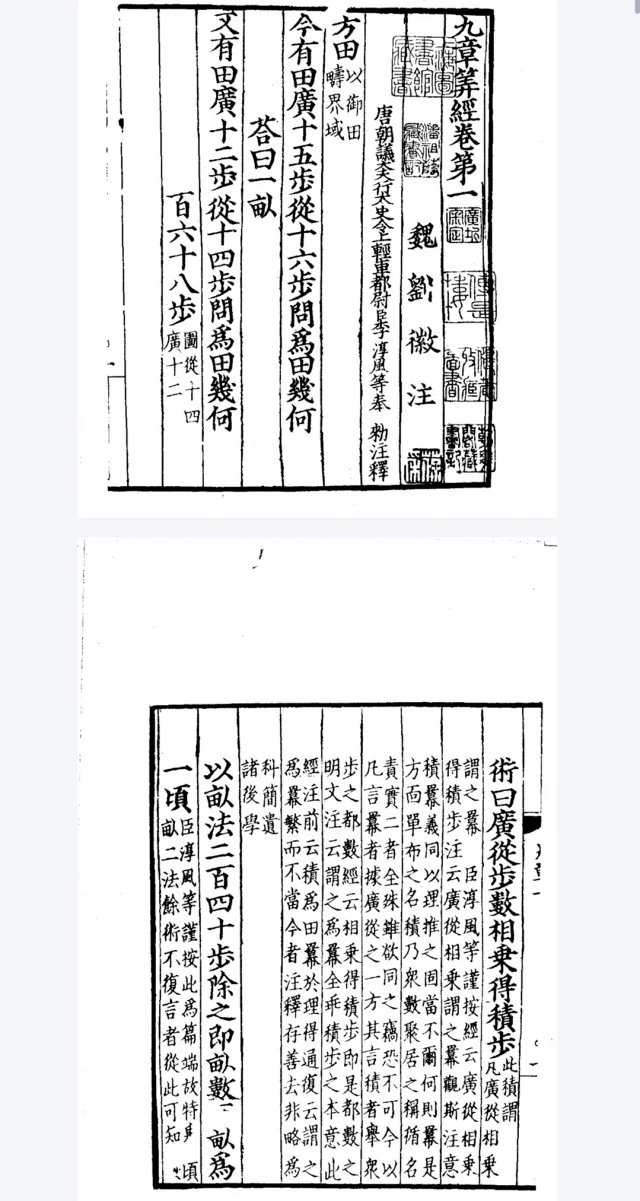 九章筭經卷第一
魏劉徽注
唐朝議大夫行太史令上輕車都尉臣李淳風等奉 勑注釋
方田以御田疇界域
今有田廣十五步從十六步問爲田幾何
荅曰一畝
又有田廣十二步從十四步問爲田幾何
百六十八步圖從十四廣十二
術曰廣從步數相乘得積步此積謂凡廣從相乘
謂之冪 臣淳風等謹按經云廣從相乘
得積步注云廣從相乘謂之冪觀斯注意
積冪義同以理推之固當不爾何則冪是
方面單布之名積乃衆數聚居之稱循名
責實二者全殊雖欲同之竊恐不可今以
凡言冪者據廣從之一方其言積者舉衆
步之都數經云相乘得積步即是都數之
明文注云謂之爲冪全乖積步之本意此
經注前云積爲田冪於理得通復云謂之
爲冪繁而不當今者注釋存善去非略爲
科簡遺
諸後學
以畝法二百四十步除之即畝數 畝爲
一頃臣淳風等謹按此爲篇端故特 頃
畝二法餘術不復言者從此可知